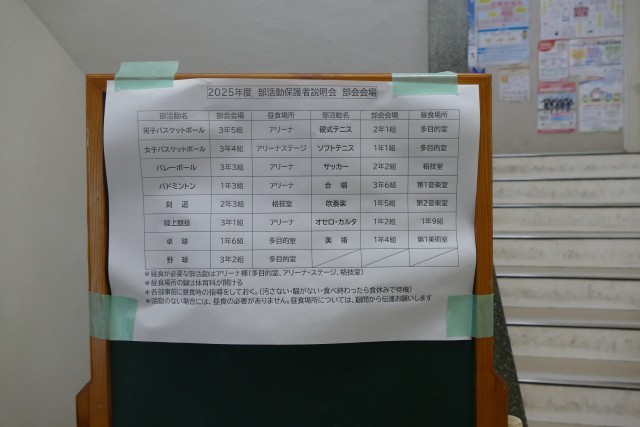 2025年度 部活動保護者説明会 部会会場
部活動名 部会会場 昼食場所 部活動名 部会会場 昼食場所
男子バスケットボール 3年5組 アリーナ 硬式テニス 2年1組 多目的室
女子バスケットボール 3年4組 アリーナステージ ソフトテニス 1年1組 多目的室
バレーボール 3年3組 アリーナ サッカー 2年2組 格技室
バドミントン 1年3組 アリーナ 合唱 3年6組 第1音楽室
剣道 2年3組 格技室 吹奏楽 1年5組 第2音楽室
陸上競技 3年1組 アリーナ オセロ・カルタ 1年2組 1年9組
卓球 1年6組 多目的室 美術 1年4組 第1美術室
野球 3年2組 多目的室
*昼食が必要な部活動はアリーナ棟(多目的室、アリーナ・ステージ、格技室)
*昼食場所の鍵は体育科が開ける
*各部事前に昼食時の指導をしておく。(汚さない・騒がない・食べ終わったら食休みで待機)
*活動のない場合には、昼食の必要がありません。昼食場所については、顧問から伝達お願いします